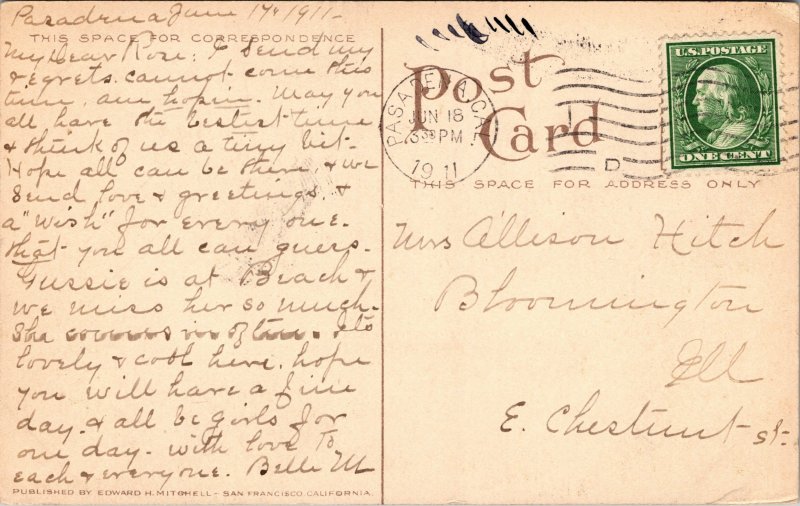 Pasadena June 17, 1911-
THIS SPACE FOR CORRESPONDENCE
My Dear Rose; I send my
regrets. cannot come this
time, am hopin. May you
all have the bestest time
& think of us a tiny bit-
Hope all can be there & we
send love & greetings, &
a "wish" for every one.
that you all can guess.
Gussie is at Beach &
we miss her so much.
She comes in often. Its
lovely & cool here. hope
you will have a fine
day. & all be girls for
one day. with love to
each & everyone. Belle M
PUBLISHED BY EDWARD H. MITCHELL - SAN FRANCISCO, CALIFORNIA.
Post
Card
THIS SPACE FOR ADDRESS ONLY
PASADENA, CAL.
JUN 18
330 PM
1911
D
U.S. POSTAGE
ONE CENT
Mrs Allison Hitch
Bloomington
Ill
E. Chestnut st-